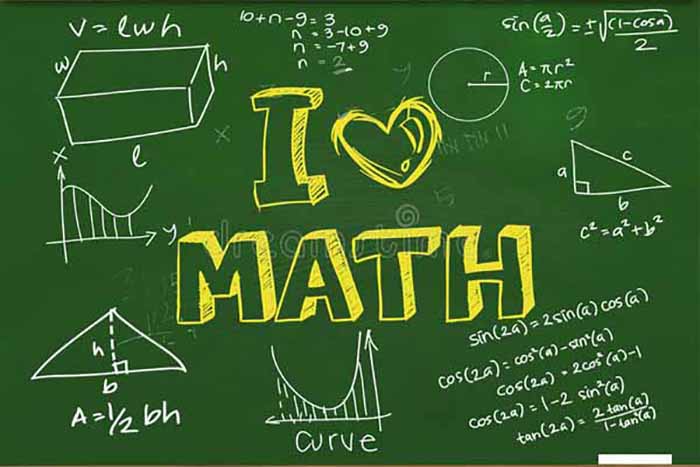 V = lwh
w
h
l
10+n-9=3
n=3-10+9
n=-7+9
n=2
sin(a/2)=±√(1-cosa)/2
r
A=πr²
C=2πr
I
a
c
b
c²=a²+b²
x
y
MATH
h
b
A=1/2 bh
curve
sin(2a)=2sin(a)cos(a)
cos(2a)=cos²(a)-sin²(a)
cos(2a)=2cos²(a)-1
cos(2a)=1-2 sin²(a)
tan(2a)=2tan(a)/1-tan²(a)